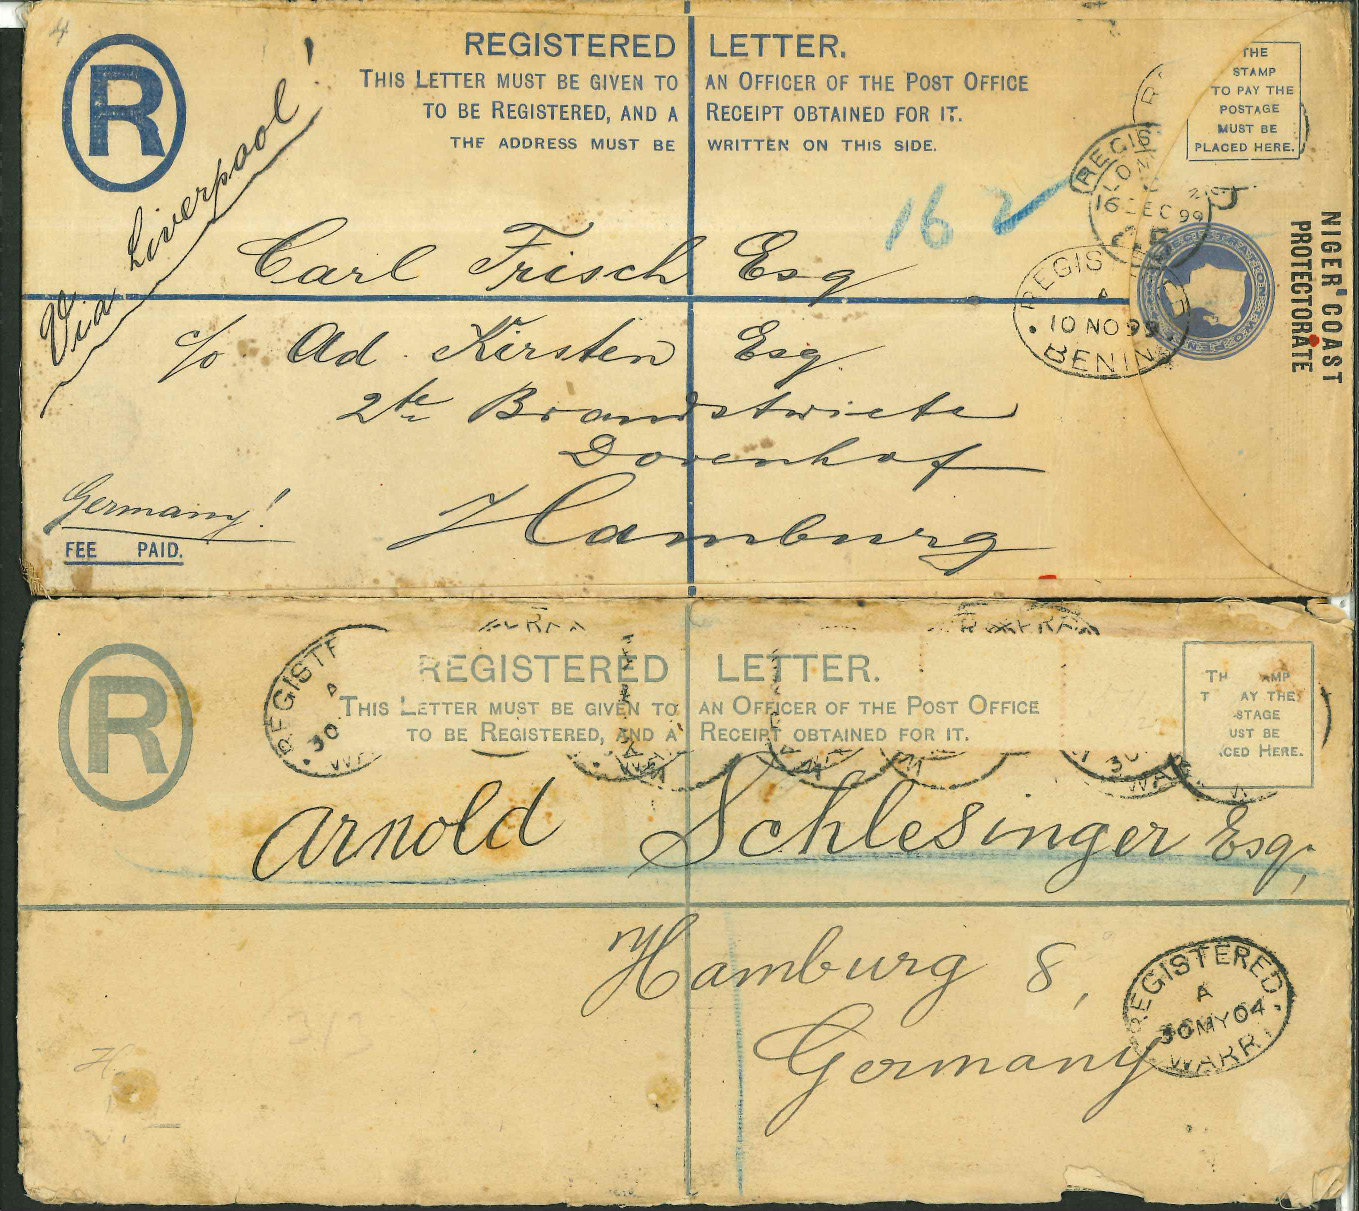 R
REGISTERED LETTER.
THIS LETTER MUST BE GIVEN TO AN OFFICER OF THE POST OFFICE
TO BE REGISTERED, AND A RECEIPT OBTAINED FOR IT.
THE ADDRESS MUST BE WRITTEN ON THIS SIDE.
THE
STAMP
TO PAY THE
POSTAGE
MUST BE
PLACED HERE.
Via Liverpool!
16 2
16 DEC 99
NIGER COAST
PROTECTORATE
Carl Frisch Esq
REGIS
A
10 NO 99
BENIN
c/o Ad. Kirsten Esq.
2te Brandstwiete
Dovenhof
Hamburg
Germany!
FEE PAID.
R
REGISTERED LETTER.
THIS LETTER MUST BE GIVEN TO AN OFFICER OF THE POST OFFICE
TO BE REGISTERED, AND A RECEIPT OBTAINED FOR IT.
TH AMP
T AY THE
STAGE
UST BE
CED HERE.
REGISTE
A
30
WA
Arnold Schlesinger Esq,
Hamburg 8,
Germany
REGISTERED
A
30 MY 04
WARRI
313